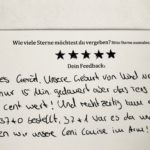 Wie viele Sterne möchtest du vergeben? Bitte Sterne ausmalen.
★★★★★
Dein Feedback:
es Gerät. Unsere Geburt von Kind
nur 15 Min gedauert aber das TENS
Cent wert! Und recht zeitig kam
37+0 bestellt, 37+1 war es da
en wir unsere im Arm